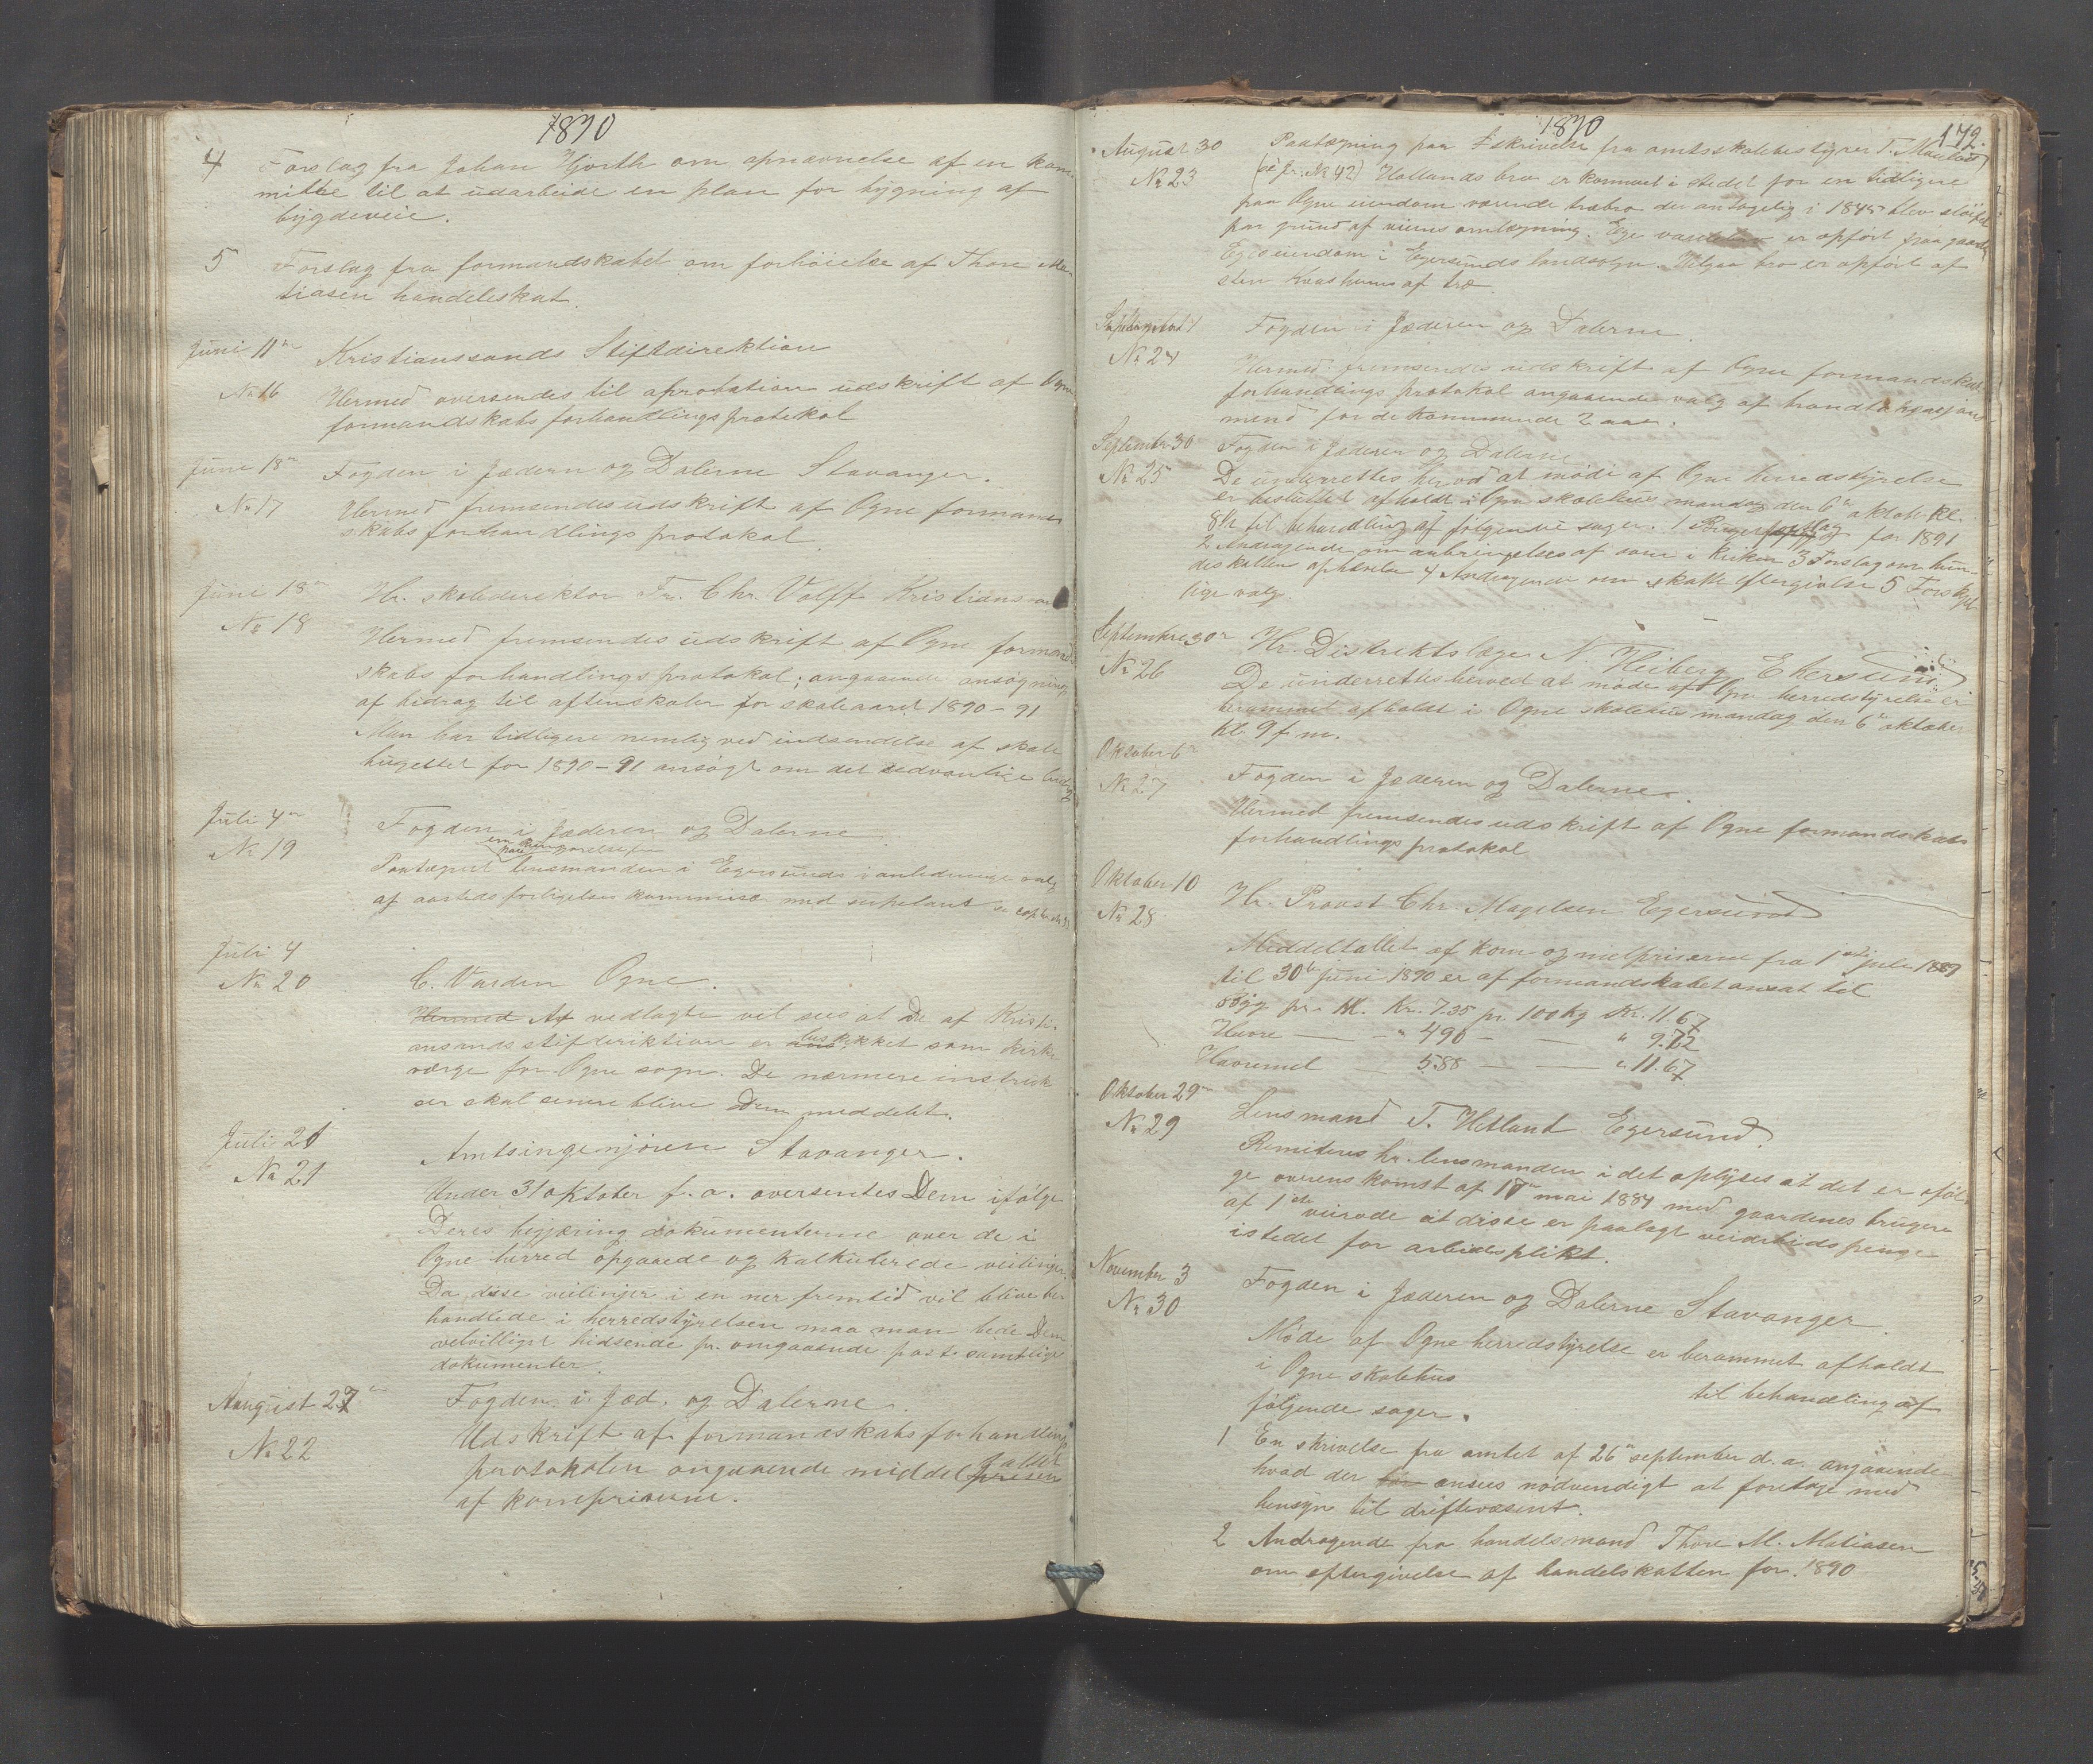 1890
4 Forslag fra Johan Hjorth om opnævnelse af en kom-
mitte til at udarbeide en plan for bygning af
bygdeveie.
5 Forslag fra formandskabet om forhöielse af Thore Ma-
tiasen handelsskat.
Juni 11te Kristianssands Stiftdirektion
No 16 Hermed oversendes til aprobation udskrift af Ogne
formandskabs forhandlingsprotokol
Juni 18de Fogden i Jædern og Dalerne Stavanger.
No 17 Hermed fremsendes udskrift af Ogne formand
skabs forhandlings protokol
Juni 18de Hr. skoledirektor Fr. Chr. Volff Kristians
No 18 Hermed fremsendes udskrift af Ogne formand
skabs forhandlingsprotokol; angaaende ansögning
af bidrag til aftenskoler for skoleaaret 1890-91
Man har tidligere nemlig ved indsendelse af skole
bugettet for 1890-91 ansögt om det sedvanlige bidrag
Juli 4de Fogden i Jæderen og Dalerne
No 19 Paategnet lensmanden i Egersunds i anledning valg
af aasteds forligelses kommisæ med suplant
Juli 4
No. 20 C. Varden Ogne.
Hermed Af vedlagte vil sees at De af Kristi-
ansands stifderiktion er beskikket som kirke
værge for Ogne sogn. De nærmere instruk
ser skal senere blive Dem meddelt.
Juli 21 Amtsingenjören Stavanger.
No 21 Under 31 oktober f. a. oversentes Dem ifölge
Deres begjæring dokumenterne over de i
Ogne herred opgaaede og kalkulerede veilinjer
Da disse veilinjer i en nær fremtid vil blive be
handlede i herredstyrelsen maa man bede Dem
velvilligst hidsende pr. omgaaende post samtlige
dokumenter.
August 27de Fogden i Jæd. og Dalerne.
No 22 Udskrift af formandskabsforhandlings
protokolen angaaende middel prisen tallet
af kornpriserne.
1890
172.
August 30 Paategning paa skrivelse fra amtsskolebestyrer T.
No 23 (se jr. No 42) Hollands bro er kommet i stedet for en tidligere
paa Ogne eiendom værende træbro der antagelig i 1845 blev slöifet
paa grund af veiens omlægning. Ege er opfört paa gaarden
Eges eiendom i Egersunds landsogn. Helgaa bro er opfört af
sten af træ
September 4 Fogden i Jæderen og Dalerne
No 24 Hermed fremsendes udskrift af Ogne formandskabs
forhandlings protokol angaaende valg af
mend for de kommende 2 aar.
September 30 Fogden i Jæderen og Dalerne
No 25 De underrettes herved at möde af Ogne herredstyrelse
er besluttet afholdt i Ogne skolehus mandag den 6te oktob. kl.
8½ til behandling af fölgende sager. 1 for 1891
2 Andragende om anbringelse af ovne i kirken 3 Forslag om hun-
deskattens ophævelse 4 Andragende om skatte eftergivelse 5 Forskjel
lige valg.
September 30te Hr. Distriktslæge N. Heiberg Ekersund
No 26 De underrettes herved at möde af Ogne herredstyrelse er
berammet afholdt i Ogne skolehus mandag den 6te oktober
kl. 9 f m.
Oktober 6te
No 27 Fogden i Jæderen og Dalerne.
Hermed fremsendes udskrift af Ogne formandskabs
forhandlings protokol
Oktober 10
No 28 Hr. Provst Chr. Magelsen Egersund
Middeltallet af korn og melpriserne fra 1ste juli 1889
til 30te Juni 1890 er af formandskabet ansat til
Byg pr. Hl. Kr. 7.35 pr. 100 kg Kr. 11.67
Havre — " 490 — — " 9.72
Havremel — 588 — — " 11.67
Oktober 29de
No 29 Lensmand T. Hetland Egersund.
Remiteres hr. lensmanden i det oplyses at det er ifölg
ge overenskomst af 17de mai 1884 med gaardenes brugere
af 1ste veirode at disse er paalagt veiarbeidspenge
istedet for arbeidsplikt.
November 3
No 30 Fogden i Jæderen og Dalerne Stavanger.
Möde af Ogne herredstyrelse er berammet afholdt
i Ogne skolehus til behandling af
fölgende sager.
1 En skrivelse fra amtet af 26de september d. a. angaaende
hvad der bör ansees nödvendigt at foretage med
hensyn til driftevæsenet.
2 Andragende fra handelsmand Thore M. Matiasen
om eftergivelse af handelskatten for 1890